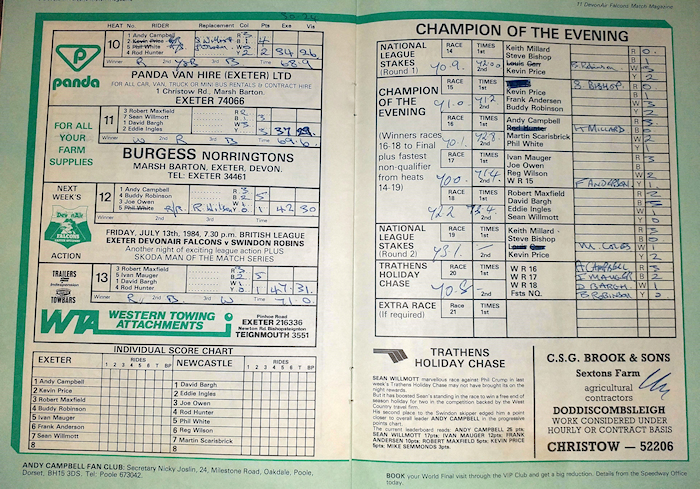 HEAT No. RIDER Replacement Col Pts Exs For Agst
10
1 Andy Campbell
2 Kevin Price
5 Phil White
4 Rod Hunter
R 3
B 1
Y 2 34 26
Winner 2nd 3rd Time 68.9
panda
PANDA VAN HIRE (EXETER) LTD
FOR ALL CAR, VAN, TRUCK OR MINI BUS RENTALS & CONTRACT HIRE
1 Christow Rd., Marsh Barton.
EXETER 74066
FOR ALL
YOUR
FARM
SUPPLIES
11
3 Robert Maxfield
7 Sean Willmott
1 David Bargh
2 Eddie Ingles
R
B
W
Y
37 29
Winner W 2nd R 3rd B Time 69.6
BURGESS NORRINGTONS
MARSH BARTON, EXETER, DEVON.
TEL: EXETER 34461
NEXT
WEEK'S
DevonAir
FALCONS
ACTION
12
1 Andy Campbell
4 Buddy Robinson
3 Joe Owen
5 Phil White R/R R. Wilson
R 3
B 2 5
W 1
Y 0 1 42 30
Winner 2nd 3rd Time
FRIDAY, JULY 13th, 1984, 7.30 p.m. BRITISH LEAGUE
EXETER DEVONAIR FALCONS v SWINDON ROBINS
Another night of exciting league action PLUS
SKODA MAN OF THE MATCH SERIES
TRAILERS
indespension
TOWBARS
13
3 Robert Maxfield
5 Ivan Mauger
1 David Bargh
4 Rod Hunter
R 3
B 2 5
W 1
Y 0 1 47 31
Winner R 2nd B 3rd W Time 71.0
WTA WESTERN TOWING
ATTACHMENTS
Pinhoe Road
EXETER 216336
Newton Rd. Bishopsteignton
TEIGNMOUTH 3551
INDIVIDUAL SCORE CHART
EXETER RIDES 1 2 3 4 5 6 7 T BP NEWCASTLE RIDES 1 2 3 4 5 6 7 T BP
1 Andy Campbell
2 Kevin Price
3 Robert Maxfield
4 Buddy Robinson
5 Ivan Mauger
6 Frank Anderson
7 Sean Willmott
8
1 David Bargh
2 Eddie Ingles
3 Joe Owen
4 Rod Hunter
5 Phil White
6 Reg Wilson
7 Martin Scarisbrick
8
ANDY CAMPBELL FAN CLUB: Secretary Nicky Joslin, 24, Milestone Road, Oakdale, Poole,
Dorset, BH15 3DS. Tel: Poole 673042.
11 DevonAir Falcons Match Magazine
CHAMPION OF THE EVENING
NATIONAL
LEAGUE
STAKES
(Round 1)
RACE 14 TIMES 1st 2nd
70.9 72.00
Keith Millard R 0
Steve Bishop B 1
Louis Carr B. Robinson W 3
Kevin Price Y 2
CHAMPION
OF THE
EVENING
(Winners races
16-18 to Final
plus fastest
non-qualifier
from heats
14-19)
RACE 15 TIMES 1st 2nd
71.0 71.2
S. BISHOP R 0
Kevin Price B 1
Frank Andersen W 3
Buddy Robinson Y 2
RACE 16 TIMES 1st 2nd
70.1 72.8
Andy Campbell R 3
Rod Hunter K MILLARD B 0
Martin Scarisbrick W 2
Phil White Y 1
RACE 17 TIMES 1st 2nd
70.0 71.4
Ivan Mauger R 3
Joe Owen B 0
Reg Wilson W 2
W R 15 F ANDERSEN Y 1
RACE 18 TIMES 1st 2nd
72.2 73.4
Robert Maxfield R 2
David Bargh B 3
Eddie Ingles W
Sean Willmott Y 0
NATIONAL
LEAGUE
STAKES
(Round 2)
RACE 19 TIMES 1st 2nd
73.1
Keith Millard R 3
Steve Bishop B 0
Louis Carr M. COLES W 1
Kevin Price Y 2
TRATHENS
HOLIDAY
CHASE
RACE 20 TIMES 1st 2nd
70.8
W R 16 A CAMPBELL R 3
W R 17 I MAUGER B 2
W R 18 D BARGH W 1
Fsts NQ. B ROBINSON Y 0
EXTRA RACE
(If required)
RACE 21 TIMES 1st
TRATHENS
HOLIDAY CHASE
SEAN WILLMOTT marvellous race against Phil Crump in last
week's Trathens Holiday Chase may not have brought its on the
night rewards.
But it has boosted Sean's standing in the race to win a free end of
season holiday for two in the competition backed by the West
Country travel firm.
His second place to the Swindon skipper edged him a point
closer to overall leader ANDY CAMPBELL in the progressive
points chart.
The current leaderboard reads: ANDY CAMPBELL 25 pts;
SEAN WILLMOTT 17pts; IVAN MAUGER 12pts; FRANK
ANDERSEN 10pts; ROBERT MAXFIELD 5pts; KEVIN PRICE
5pts; MIKE SEMMONDS 3pts.
C.S.G. BROOK & SONS
Sextons Farm
agricultural
contractors
DODDISCOMBSLEIGH
WORK CONSIDERED UNDER
HOURLY OR CONTRACT BASIS
CHRISTOW — 52206
BOOK your World Final visit through the VIP Club and get a big reduction. Details from the Speedway Office
today.